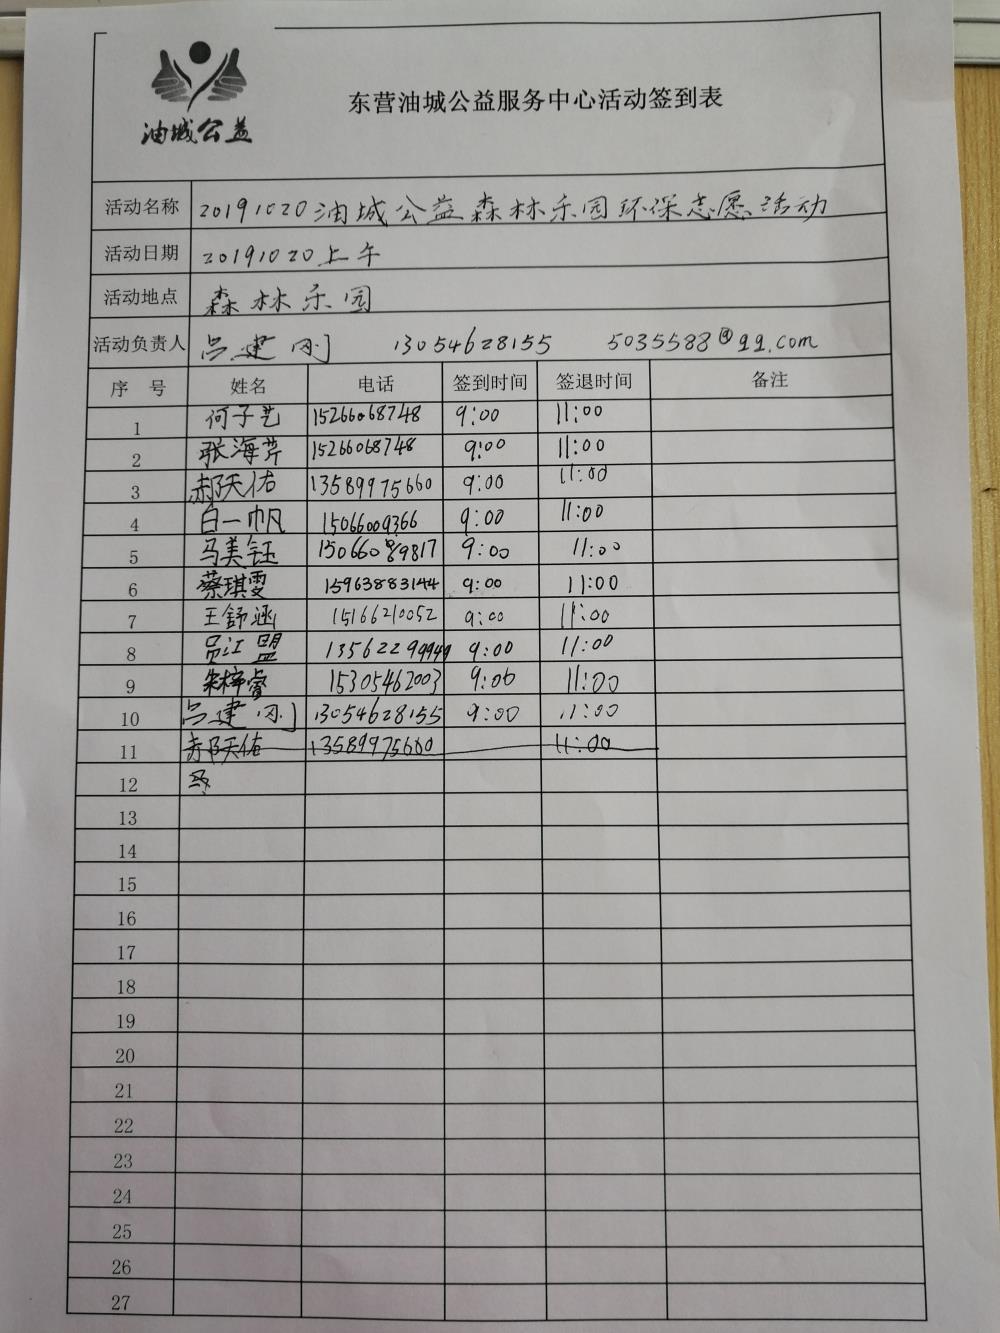 油城公益
东营油城公益服务中心活动签到表
活动名称 20191020油城公益森林乐园环保志愿活动
活动日期 20191020上午
活动地点 森林乐园
活动负责人 吕建刚 13054628155 5035588@qq.com
序号 姓名 电话 签到时间 签退时间 备注
1 何子艺 15266068748 9:00 11:00
2 张海芹 15266068748 9:00 11:00
3 郝天佑 13589975660 9:00 11:00
4 白一帆 15066009366 9:00 11:00
5 马美钰 15066089817 9:00 11:00
6 蔡琪雯 15963883144 9:00 11:00
7 王舒涵 15166210052 9:00 11:00
8 江盟 13562299949 9:00 11:00
9 朱梓睿 15305462003 9:00 11:00
10 吕建刚 13054628155 9:00 11:00
11 郝天佑 13589975660 11:00
12
13
14
15
16
17
18
19
20
21
22
23
24
25
26
27